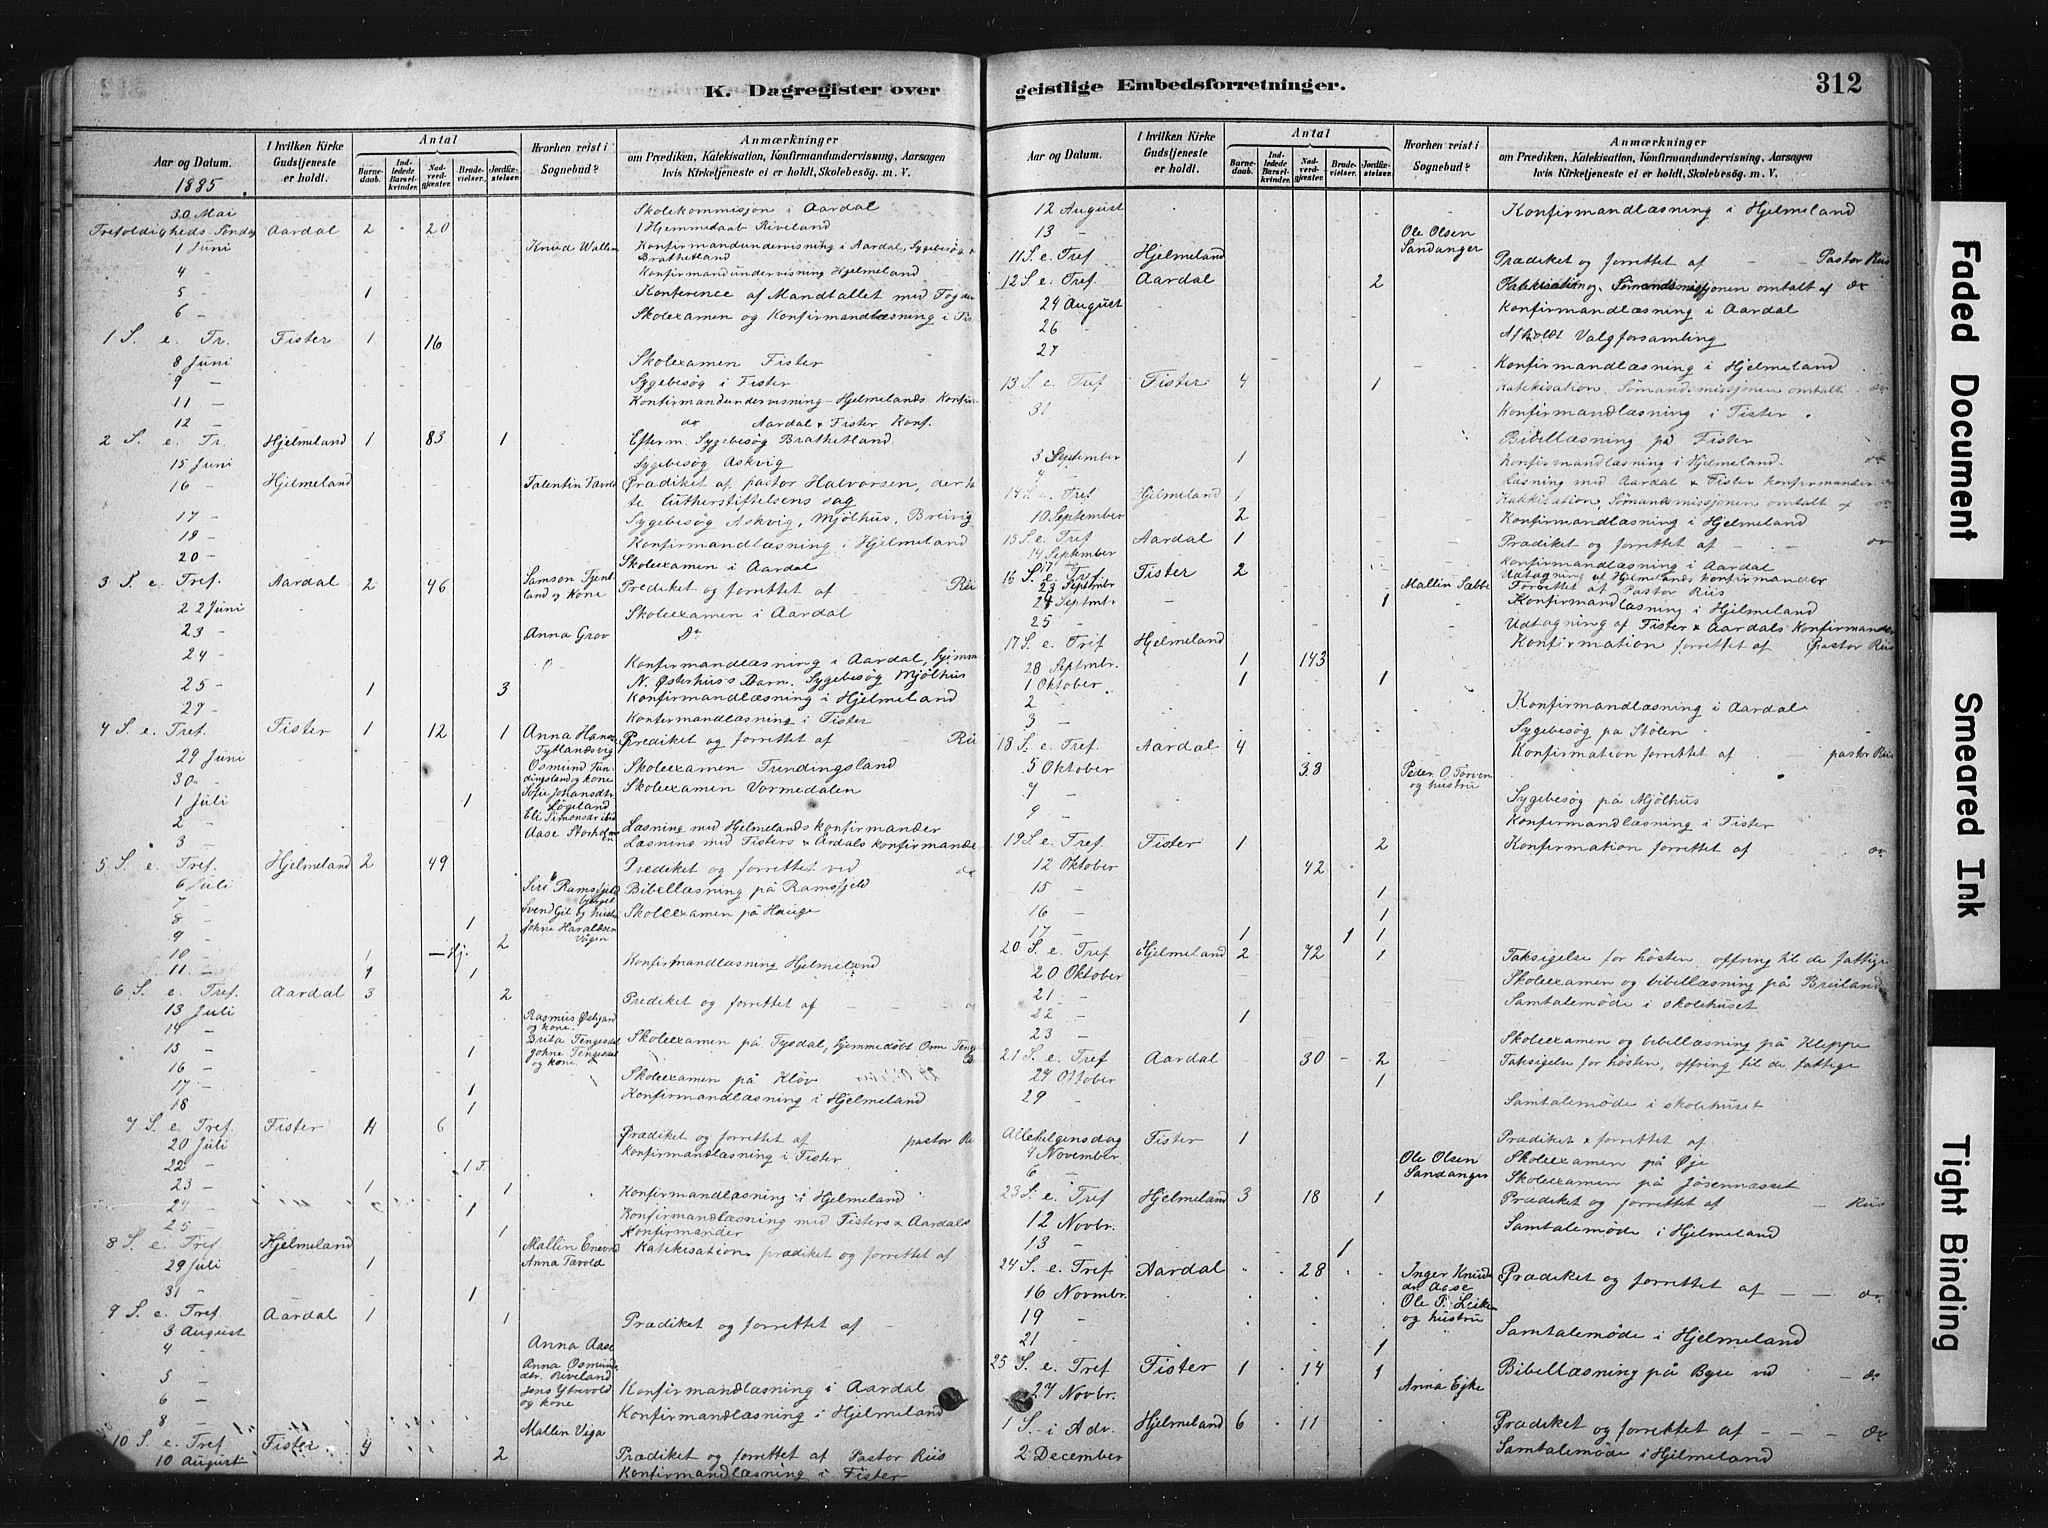 K. Dagregister over
Aar og Datum.
1885.
I hvilken Kirke Gudstjeneste er holdt.
Antal
Barnedaab.
Indledede Barselkvinder.
Nadverdgjæster.
Brudevielser.
Jordfæstelser.
Hvorhen reist i Sognebud?
Anmærkninger
om Prædiken, Katekisation, Konfirmandundervisning, Aarsagen
hvis Kirketjeneste ei er holdt, Skolebesøg. m. V.
30 Mai Skolekommisjon i Aardal
Trefoldigheds Søndag Aardal 2 20 1 Hjemmedaab Riveland
1 Juni Knud Wallen Konfirmandundervisning i Aardal, Sygebesøg
Brathetland
4 - Konfirmandundervisning Hjelmeland
5 - 1 Konference af Mandtallet med Fogden
6 - Skolexamen og Konfirmandlæsning i Fis
1 S. e. Tr. Fister 1 16
8 Juni Skolexamen Fister
9 - Sygebesøg i Fister
11 - Konfirmandundervisning - Hjelmelands Konfir
12 - do Aardal & Fister Konf.
2 S. e. Tr. Hjelmeland 1 83 1 Efterm. Sygebesøg Brathetland
15 Juni Sygebesøg Askvig
16 - Hjelmeland Prædiket af pastor Halvorsen, der
lutherstiftelsens sag
17 - Sygebesøg Askvig, Mjølhus, Breivig
18 - Konfirmandlæsning i Hjelmeland
20 - Skolexamen i Aardal
3 S. e. Tref. Aardal 2 46 Samson Tjent
land og Kone Prediket og forrettet af - Riis
22 Juni Skolexamen i Aardal
23 - Anna Grov Do
24 - Konfirmandlæsning i Aardal, hjemm
N. Østerhus's Barn. Sygebesøg Mjølhus
25 - 1 3 Konfirmandlæsning i Hjelmeland
27 - Konfirmandlæsning i Fister
4 S. e. Tref. Fister 1 12 1 Anna Hans
Tytlandsvig Prediket og forrettet af - Rii
29 Juni Osmund Fun
dingsland og kone Skoleexamen Fundingsland
30 - Sofie Johansdtr
Løgeland Skoleexamen Vormedalen
1 Juli 1
2 - Eli Simonsdr ibid
Aase Storhol Læsning med Hjelmelands konfirmander
3 - Læsning med Fisters & Ardals konfirmande
5 S. e. Tref. Hjelmeland 2 49 Prediket og forrettet ved do
6 Juli Siri Ramsfjeld Bibellæsning på Ramsfjeld
7 -
8 - 1 Svend Gil og hustru Skoleexamen på Hauge
9 - 2 Johne Haraldsen
Vågen
10 - 1 - Hj.
11 - 1 1 Konfirmandlæsning Hjelmeland
6 S. e. Tref. Aardal 3 2 Prediket og forrettet af
13 Juli
14 - Rasmus Østigard
og kone.
15 - 1 Brita Tengesdal
Johne Tengesdal
og kone Skoleexamen på Tysdal, hjemmedøbt Osm. Tenge
16 -
17 - 1 Skoleexamen på Kløv
18 1 Konfirmandlæsning i Hjelmeland
7 S. e. Tref. Fister 4 6 Prædiket og forrettet af pastor Ri
20 Juli Konfirmandlæsning i Fister
22 - 1 F.
23 - 1 1 Konfirmandlæsning i Hjelmeland
24 - 1 Konfirmandlæsning med Fisters & Aardals
25 - 1 Konfirmander
8 S. e. Tref Hjelmeland Mallin Enevold Katekisation, prædiket og forrettet af
29 Juli 1 Anna Tavold
31 - 1
9 S. e. Tref. Aardal 1 1 Prædiket og forrettet af -
3 August
4 - Anna Aase
5 - Anna Osmunds
dtr. Riveland
6 - Jens Ytrevold
og kone Konfirmandlæsning i Aardal
8 - Mallin Viga Konfirmandlæsning i Hjelmeland
10 S. e. Tref Fister 4 2 Prædiket og forrettet af Pastor Riis
10 August Konfirmandlæsning i Fister
geistlige Embedsforretninger.
312
Aar og Datum.
I hvilken Kirke Gudstjeneste er holdt.
Antal
Barnedaab.
Indledede Barselkvinder.
Nadverdgjæster.
Brudevielser.
Jordfæstelser.
Hvorhen reist i Sognebud?
Anmærkninger
om Prædiken, Katekisation, Konfirmandundervisning, Aarsagen
hvis Kirketjeneste ei er holdt, Skolebesøg. m. V.
12 August Konfirmandlæsning i Hjelmeland
13 - Ole Olsen
Sandanger
11 S. e. Tref Hjelmeland Prædiket og forrettet af - Pastor Riis
12 S. e. Tref. Aardal 2 Katekisation og Sømandsmissjonen omtalt af do
24 August Konfirmandlæsning i Aardal
26 - Afholdt Valgforsamling
27 - Konfirmandlæsning i Hjelmeland
13 S. e. Tref Fister 4 1 Katekisation, Sømandsmissjonen omtalt do
31 Konfirmandlæsning i Fister
Bibellæsning på Fister
3 September 1 Konfirmandlæsning i Hjelmeland
4 - Læsning med Aardal & Fister konfirmander
14 S. e. Tref Hjelmeland 1 Katekisation, Sømandsmissionen omtalt af do
10 September 2 Konfirmandlæsning i Hjelmeland
15 S. e. Tref Aardal 1 Prædiket og forrettet af - do
14 September Konfirmandlæsning i Aardal
17 - Udtagning af Hjelmelands konfirmander
16 S. e. Tref Fister 2 Forrettet af Pastor Riis
23 Septembr Mallin Sæbbe Konfirmandlæsning i Hjelmeland
24 Septmbr - 1
25 - Udtagning af Fister & Aardals Konfirmander
17 S. e. Tref Hjelmeland 1 143 Konfirmation forrettet af Pastor Riis
28 Septmbr.
1 Oktober 1 1
2 Konfirmandlæsning i Aardal
3 - Sygebesøg på Stølen
18 S. e. Tref. Aardal 4 38 Konfirmation forrettet af - pastor Riis
5 Oktober Peder O. Torven
og hustru
7 - Sygebesøg på Mjølhus
9 - Konfirmandlæsning i Fister
19 S. e. Tref. Fister 1 42 2 Konfirmation forrettet af - do
12 Oktober
15 - 1
16 - 1
17 - 1 1 1
20 S. e. Tref Hjelmeland 2 72 1 Taksigelse for høsten, offring til de fattige
20 Oktober Skoleexamen og bibellæsning på Breiland
21 - Samtalemøde i skolehuset
22 - 1
23 - Skoleexamen og bibellæsning på Kleppe
21 S. e. Tref Aardal 30 - 2 Taksigelse for høsten, offring til de fattige
24 Oktober 1
29 - Samtalemøde i skolehuset
Allehelgensdag Fister 1 Prædiket & forrettet af
4 November Ole Olsen
Sandanger Skoleexamen på Øje
6 - Skoleexamen på Jøsennæsset
23 S. e. Tref Hjelmeland 3 18 1 Prædiket og forrettet af - Riis
12 Novbr. Samtalemøde i Hjelmeland
13 - 1
24 S. e. Tref Aardal 28 Inger Knuds
dr. Aase Prædiket og forrettet af - - do
16 Novmbr. Ole T. Leiken
og hustru
19 - Samtalemøde i Hjelmeland
21 - 1
25 S. e. Tref Fister 1 14 1 Bibellæsning på Bgse ved - do
27 Novbr. Anna Eike
1 S. i Adv. Hjelmeland 6 11 Prædiket og forrettet af - - - do
2 December Samtalemøde i Hjelmeland
Faded Document
Smeared Ink
Tight Binding